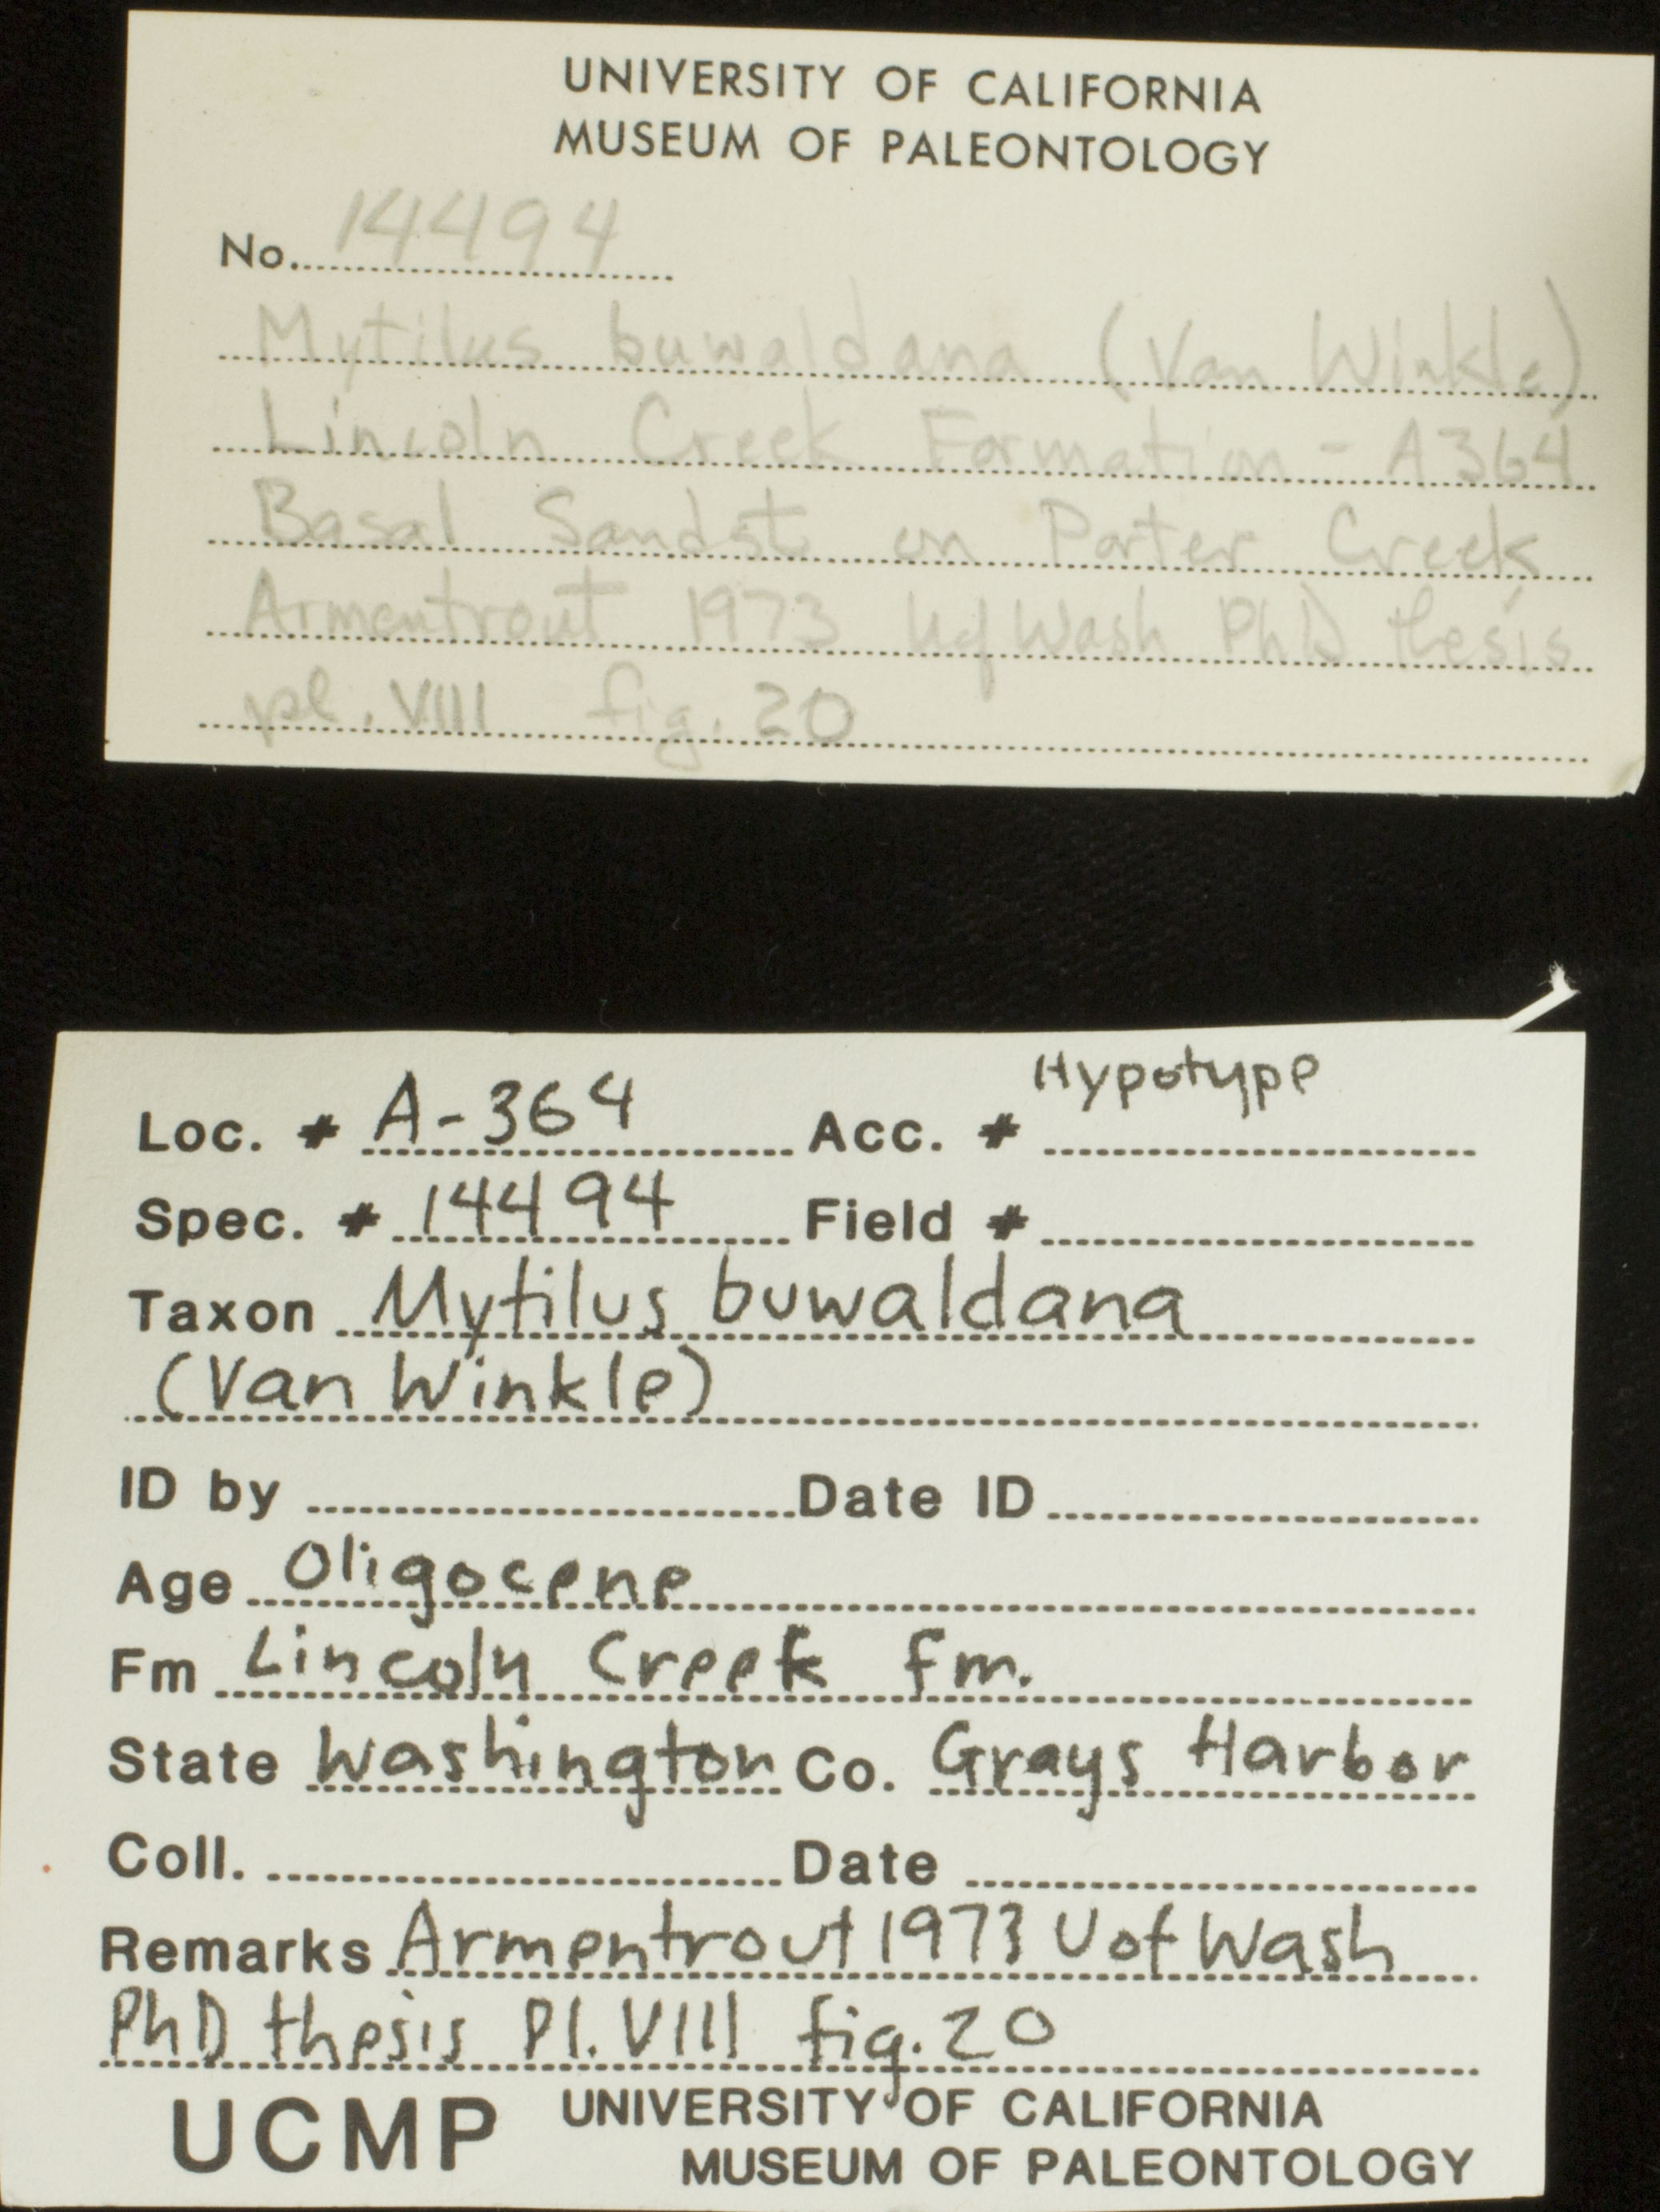 UNIVERSITY OF CALIFORNIA
MUSEUM OF PALEONTOLOGY
No. 14494
Mytilus buwaldana (Van Winkle)
Lincoln Creek Formation - A364
Basal Sandst on Porter Creek
Armentrout 1973 U of Wash PhD thesis
pl. VIII fig. 20
Hypotype
Loc. # A-364 Acc. #
Spec. # 14494 Field #
Taxon Mytilus buwaldana
(Van Winkle)
ID by Date ID
Age Oligocene
Fm Lincoln Creek Fm.
State Washington Co. Grays Harbor
Coll. Date
Remarks Armentrout 1973 U of Wash
PhD thesis Pl. VIII fig. 20
UCMP UNIVERSITY OF CALIFORNIA
MUSEUM OF PALEONTOLOGY